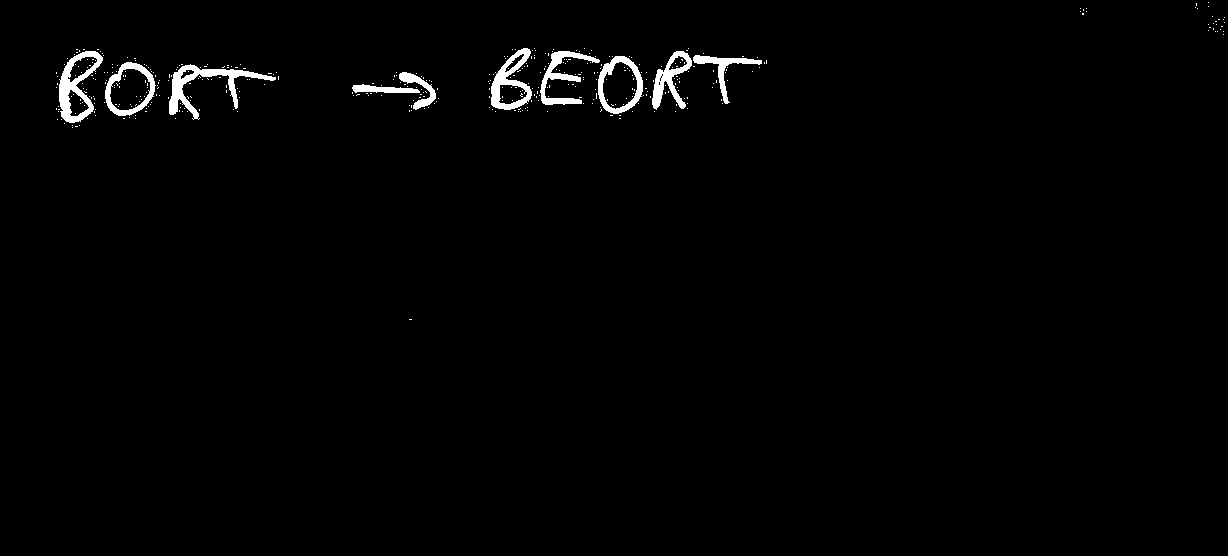 BORT → BEORT